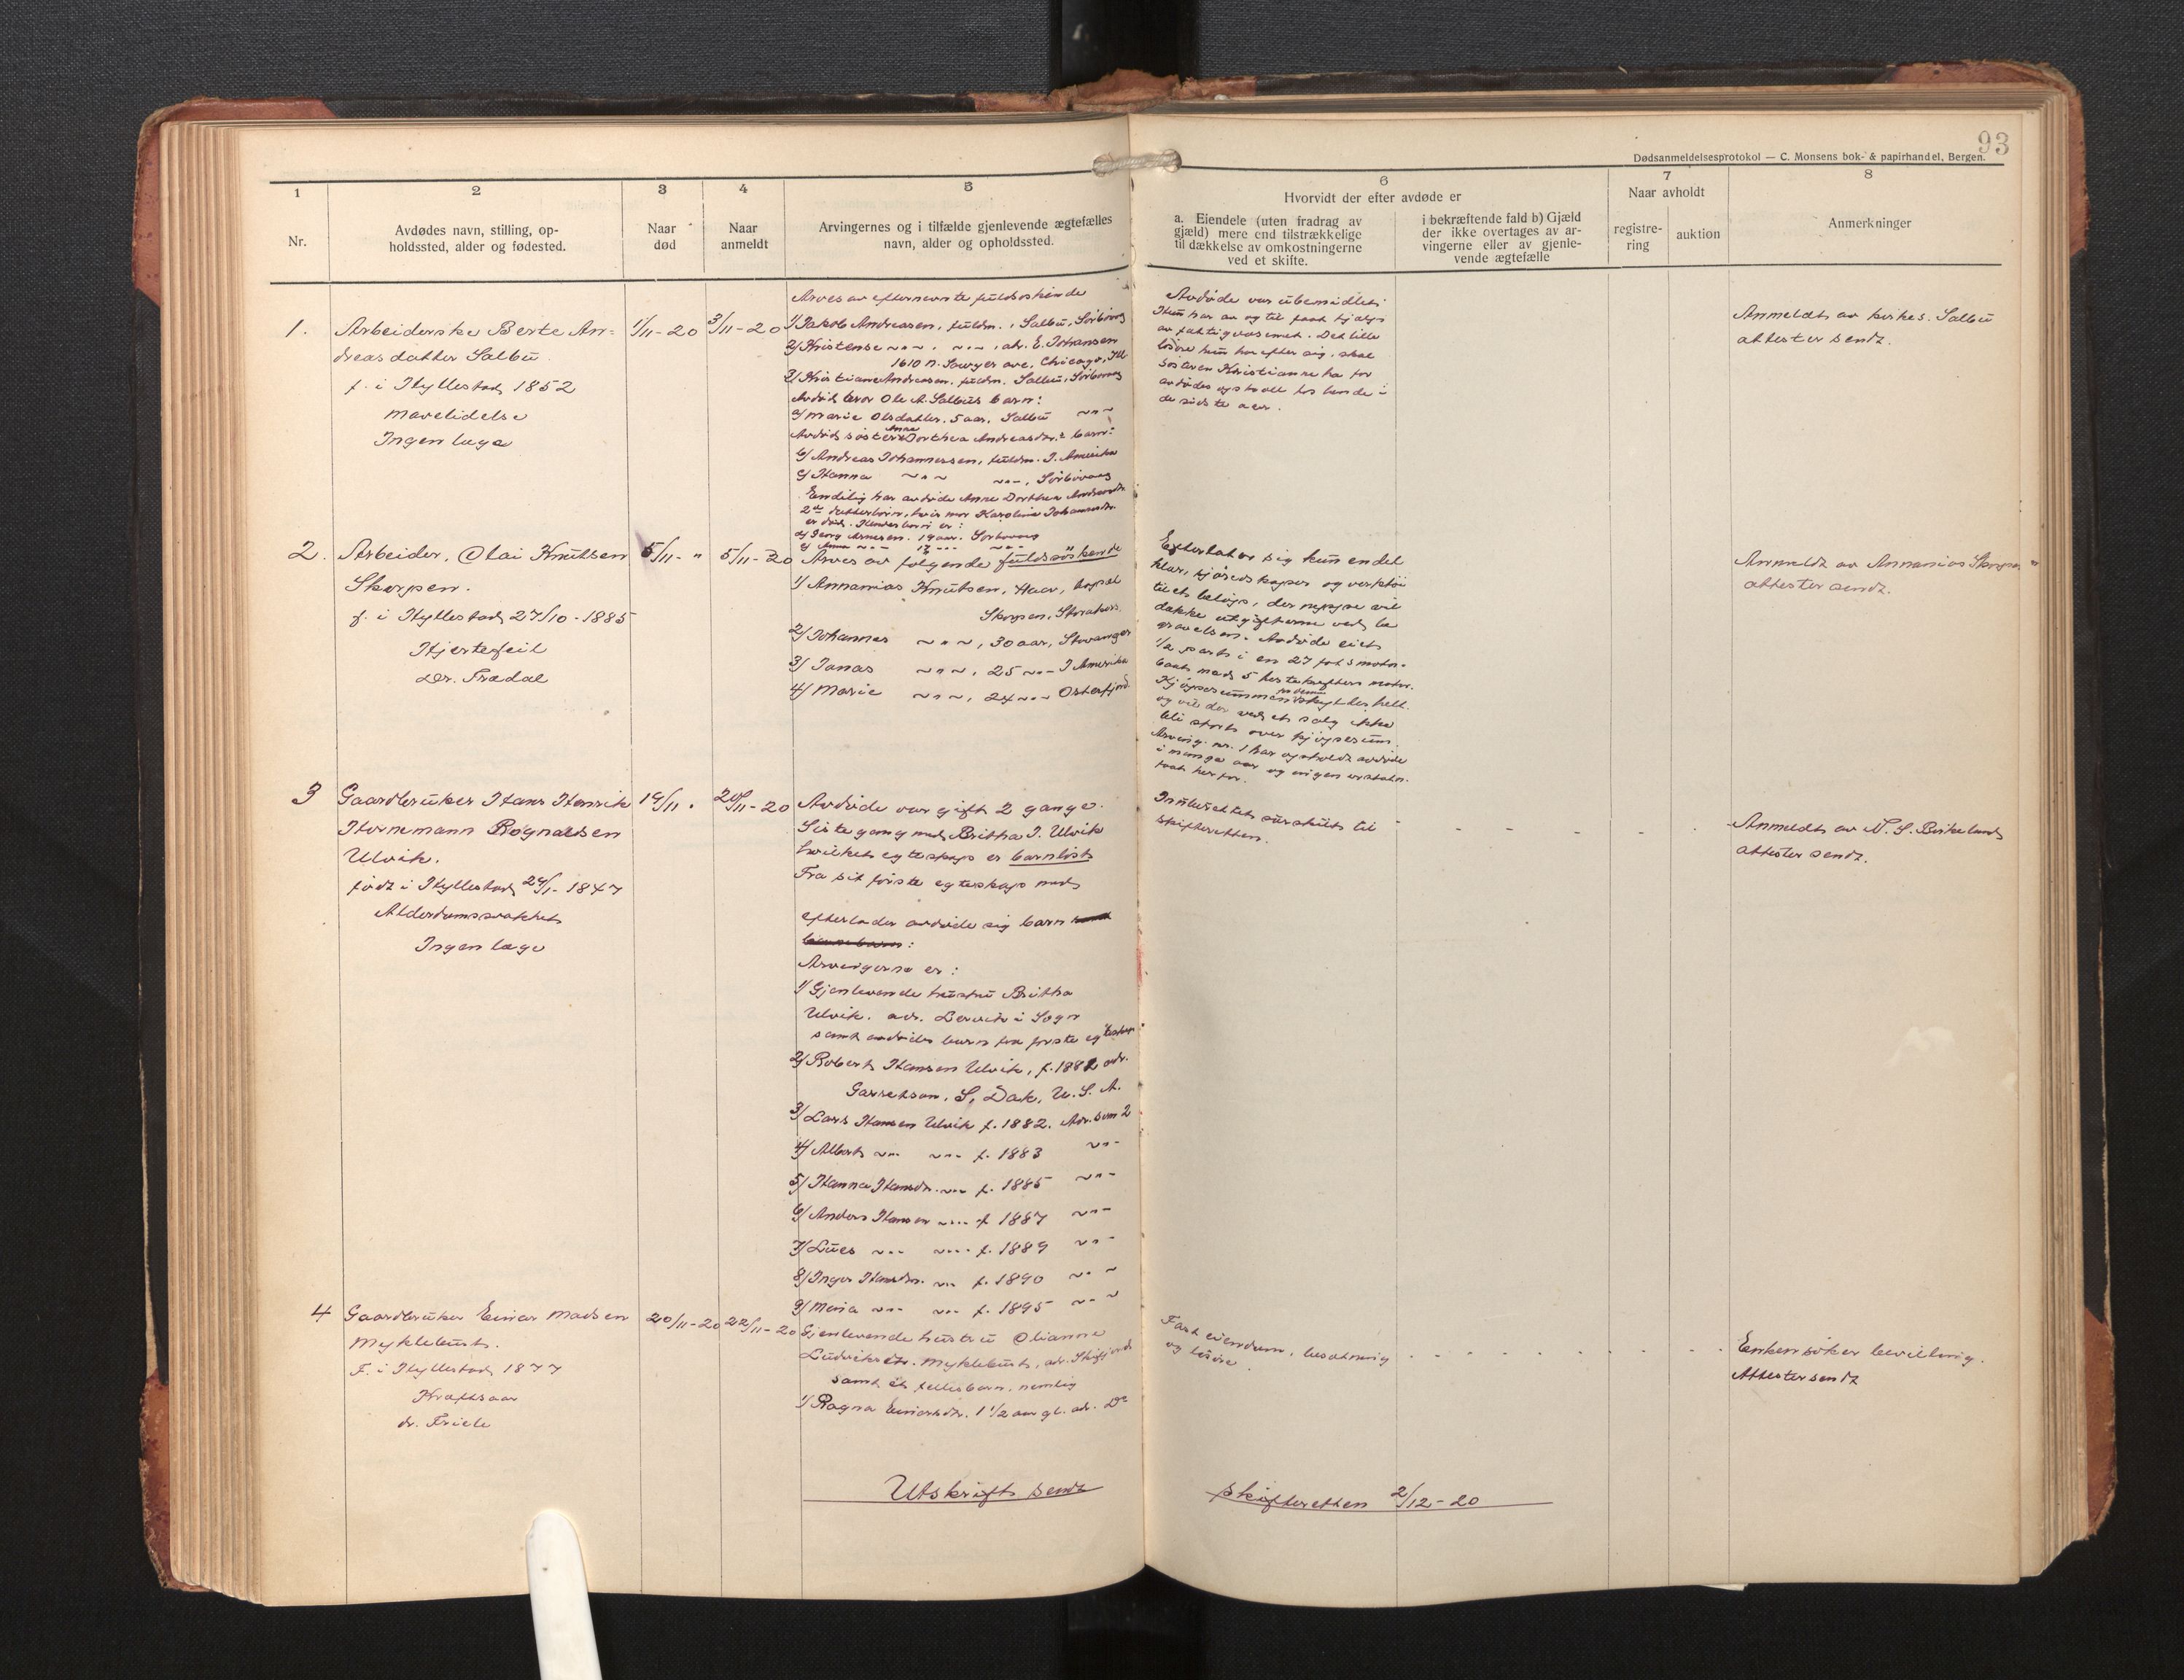 93
Dødsanmeldelsesprotokol — C. Monsens bok- & papirhandel, Bergen.
1
2
3
4
5
6
7
8
Nr.
Avdødes navn, stilling, op-
holdssted, alder og fødested.
Naar
død
Naar
anmeldt
Arvingernes og i tilfælde gjenlevende ægtefælles
navn, alder og opholdssted.
Hvorvidt der efter avdøde er
a. Eiendele (uten fradrag av
gjæld) mere end tilstrækkelige
til dækkelse av omkostningerne
ved et skifte.
i bekræftende fald b) Gjæld
der ikke overtages av ar-
vingerne eller av gjenle-
vende ægtefælle
Naar avholdt
registre-
ring
auktion
Anmerkninger
1.
Arbeiderske Berte An-
dreasdatter Salbu
f. i Hyllestad 1852
Mavelidelse
Ingen læge
1/11-20
3/11-20
Arves av efternevnte fuldsøskende
1/ Jakob Andreasen, fuldm., Salbu, Sørbøvaag
2/ Kristense ~"~ . ~"~ , adr. E. Johansen
1610 N. Sawyer ave, Chicago, Ill
3/ Kristiane Andreasen, fuldm. Salbu, Sørbøvaag
Avdød bror Ole A. Salbus barn:
a/ Marie Olsdatter, 5 aar, Salbu ~"~
Avdød søster Anne Dorthea Andreasdtr.s barn:
b/ Andreas Johannessen, fuldm. I. Amerika
c/ Hanna ~"~ ~"~, Sørbøvaag
Endelig har avdøde Anne Dorthea Andreasdtr.
2de datterbørn, hvis mor Karoline Johannesdtr.
er død. Hendes barn er:
d/ Georg Arnesen. 19 aar. Sørbøvaag
e/ Anna ~"~ 17 ~"~ ~"~
Avdøde var ubemidlet.
Hun har av og til faat hjælp
av fattigvæsenet. Det lille
løsøre hun har efter sig, skal
søsteren Kristianne ha for
avdødes ophold hos hende i
de siste aar.
Anmeldt av kirkes. Salbu
attester sendt.
2.
Arbeider, Olai Knutsen
Skorpen.
f. i Hyllestad 27/10-1885
Hjertefeil
Dr. Frædal
5/11- "
5/11-20
Arves av følgende fuldsøskende
1/ Annanias Knutsen,
Skorpen,
2/ Johannes ~"~, 30 aar, Stavanger
3/ Jonas ~"~, 25 ~"~ I Amerika
4/ Marie ~"~, 24 ~"~ Osterfjord
Efterlater sig kun endel
klær, og verktøi
til et beløp, der neppe vil
dække utgifterne ved be-
gravelsen. Avdøde eiet
1/2 part i en 27 fots motor-
baat med 5 hestekræfters motor.
og vil der ved et salg ikke
bli stort over kjøpesum.
Arving nr. 1 har opholdt avdøde
i mange aar og ingen erstatn.
faat herfor.
Anmeldt av Annanias Skorpen
attester sendt.
3
Gaardbruker Hans Henrik
Hornemann Rognaldsen
Ulvik.
født i Hyllestad 24/1-1847
Alderdomssvakhet
Ingen læge
19/11 "
20/11-20
Avdøde var gift 2 gange.
Siste gang med Brittha I. Ulvik
hvilket egteskap er barnløst
Fra sit første egteskap med
efterlader avdøde sig barn
:
Arvingerne er:
1/ Gjenlevende hustru Brittha
Ulvik. adr. Leirvik i Sogn
samt avdødes barn fra første egteskap:
2/ Robert Hansen Ulvik, f. 1881 adr.
Garretson, S. Dak, U. S. A.
3/ Lars Hansen Ulvik f. 1882. Adr. som 2
4/ Albert ~"~ ~"~ f. 1883 ~"~
5/ Hanna Hansdr. ~"~ f. 1885 ~"~
6/ Anders Hansen ~"~ f 1887 ~"~
7/ Lues ~"~ ~"~ f. 1889 ~"~
8/ Inger Hansdr. ~"~ f. 1890 ~"~
9/ Maria ~"~ ~"~ f. 1895 ~"~
Indberettet særskilt til
skifteretten.
- - - - - -
Anmeldt av N. S. Birkeland
attester sendt.
4
Gaardbruker Einar Madsen
Myklebust.
F. i Hyllestad 1877
Kræftsaar
dr. Friele
20/11-20
22/11-20
Gjenlevende hustru Olianne
Ludviksdr. Myklebust, adr. Skifjord
samt et fellesbarn, nemlig
1/ Ragna Einarsdtr. 1 1/2 aar gl. adr. Do
Fast eiendom, besætning
og løsøre.
- - - - - -
Enken søker bevilling.
Attester sendt
Utskrift sendt skifteretten 2/12-20